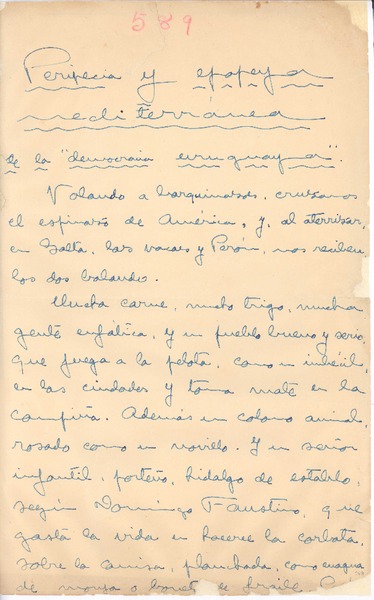 589
Peripecia y epopeya
mediterránea
de la "democracia uruguaya".
Volando a barquinazos, cruzamos
el espinazo de América, y, al aterrizar,
en Salta, las vacas y Perón, nos reciben
los dos balando.
Mucha carne, mucho trigo, mucha
gente enfática, y un pueblo bueno y serio,
que juega a la pelota, como un imbécil,
en las ciudades y toma mate en la
campiña. Además un colono animal,
rosado como un novillo. Y un señor
infantil, porteño, hidalgo de establo,
según Domingo Faustino, que
gasta la vida en hacerse la corbata,
sobre la camisa, planchada, como enagua
de monja o bonete de fraile.